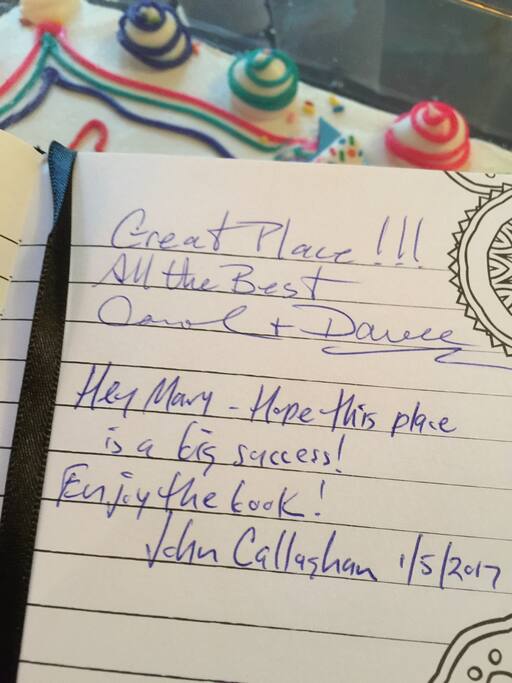 Great Place!!!
All the Best
Carol + Dave
Hey Mary - Hope this place
is a big success!
Enjoy the book!
John Callaghan 1/5/2017